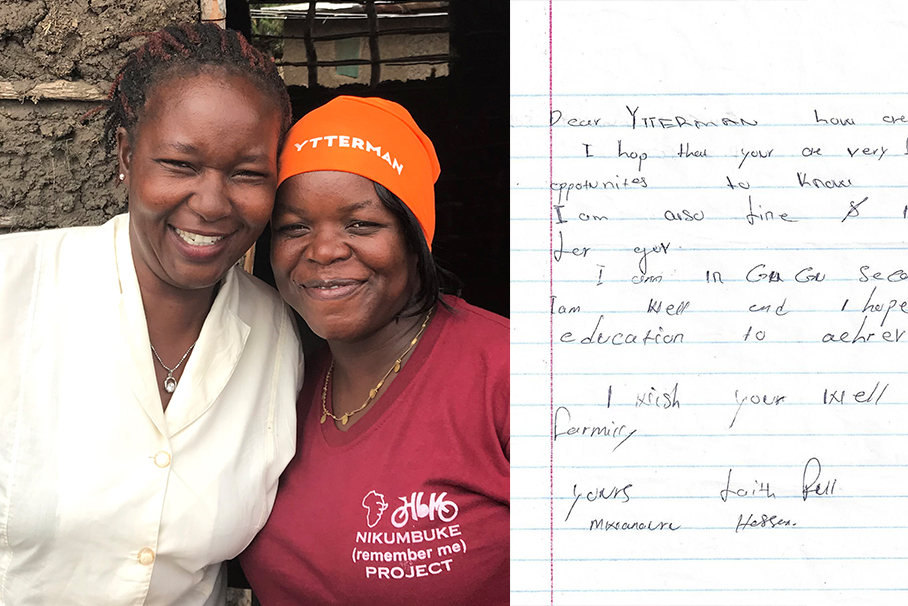 YTTERMAN
NIKUMBUKE
(remember me)
PROJECT
Dear YTTERMAN how are
I hop that your are very
oppotunites to know
I am also fine &
for you.
I am in Secо
I am well and I hope
education to
I wish your well
yours faith full